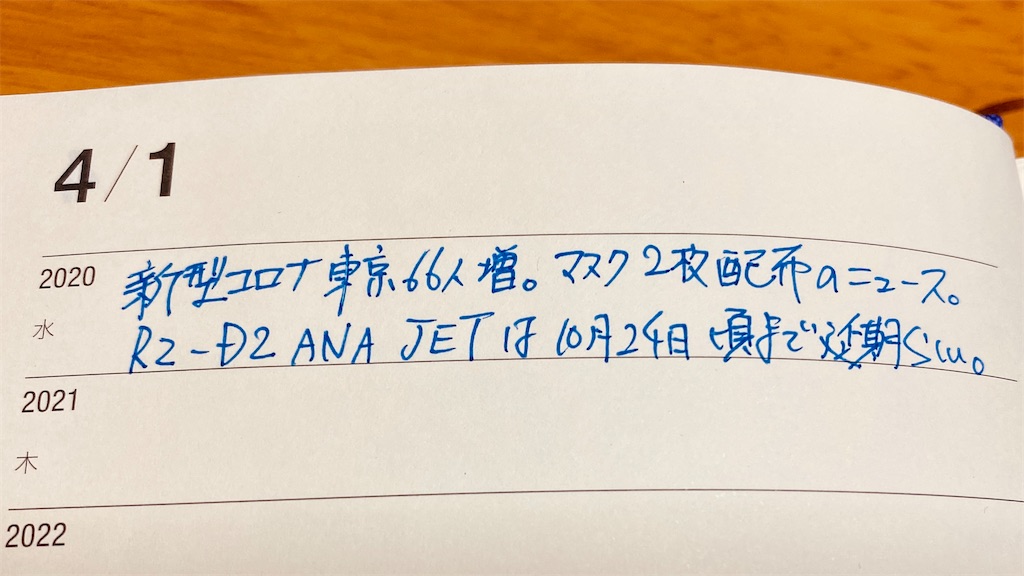 4/1
2020
新型コロナ東京66人増。マスク2枚配布のニュース。
水
R2-D2 ANA JETは10月24日頃まで延期らしい。
2021
木
2022